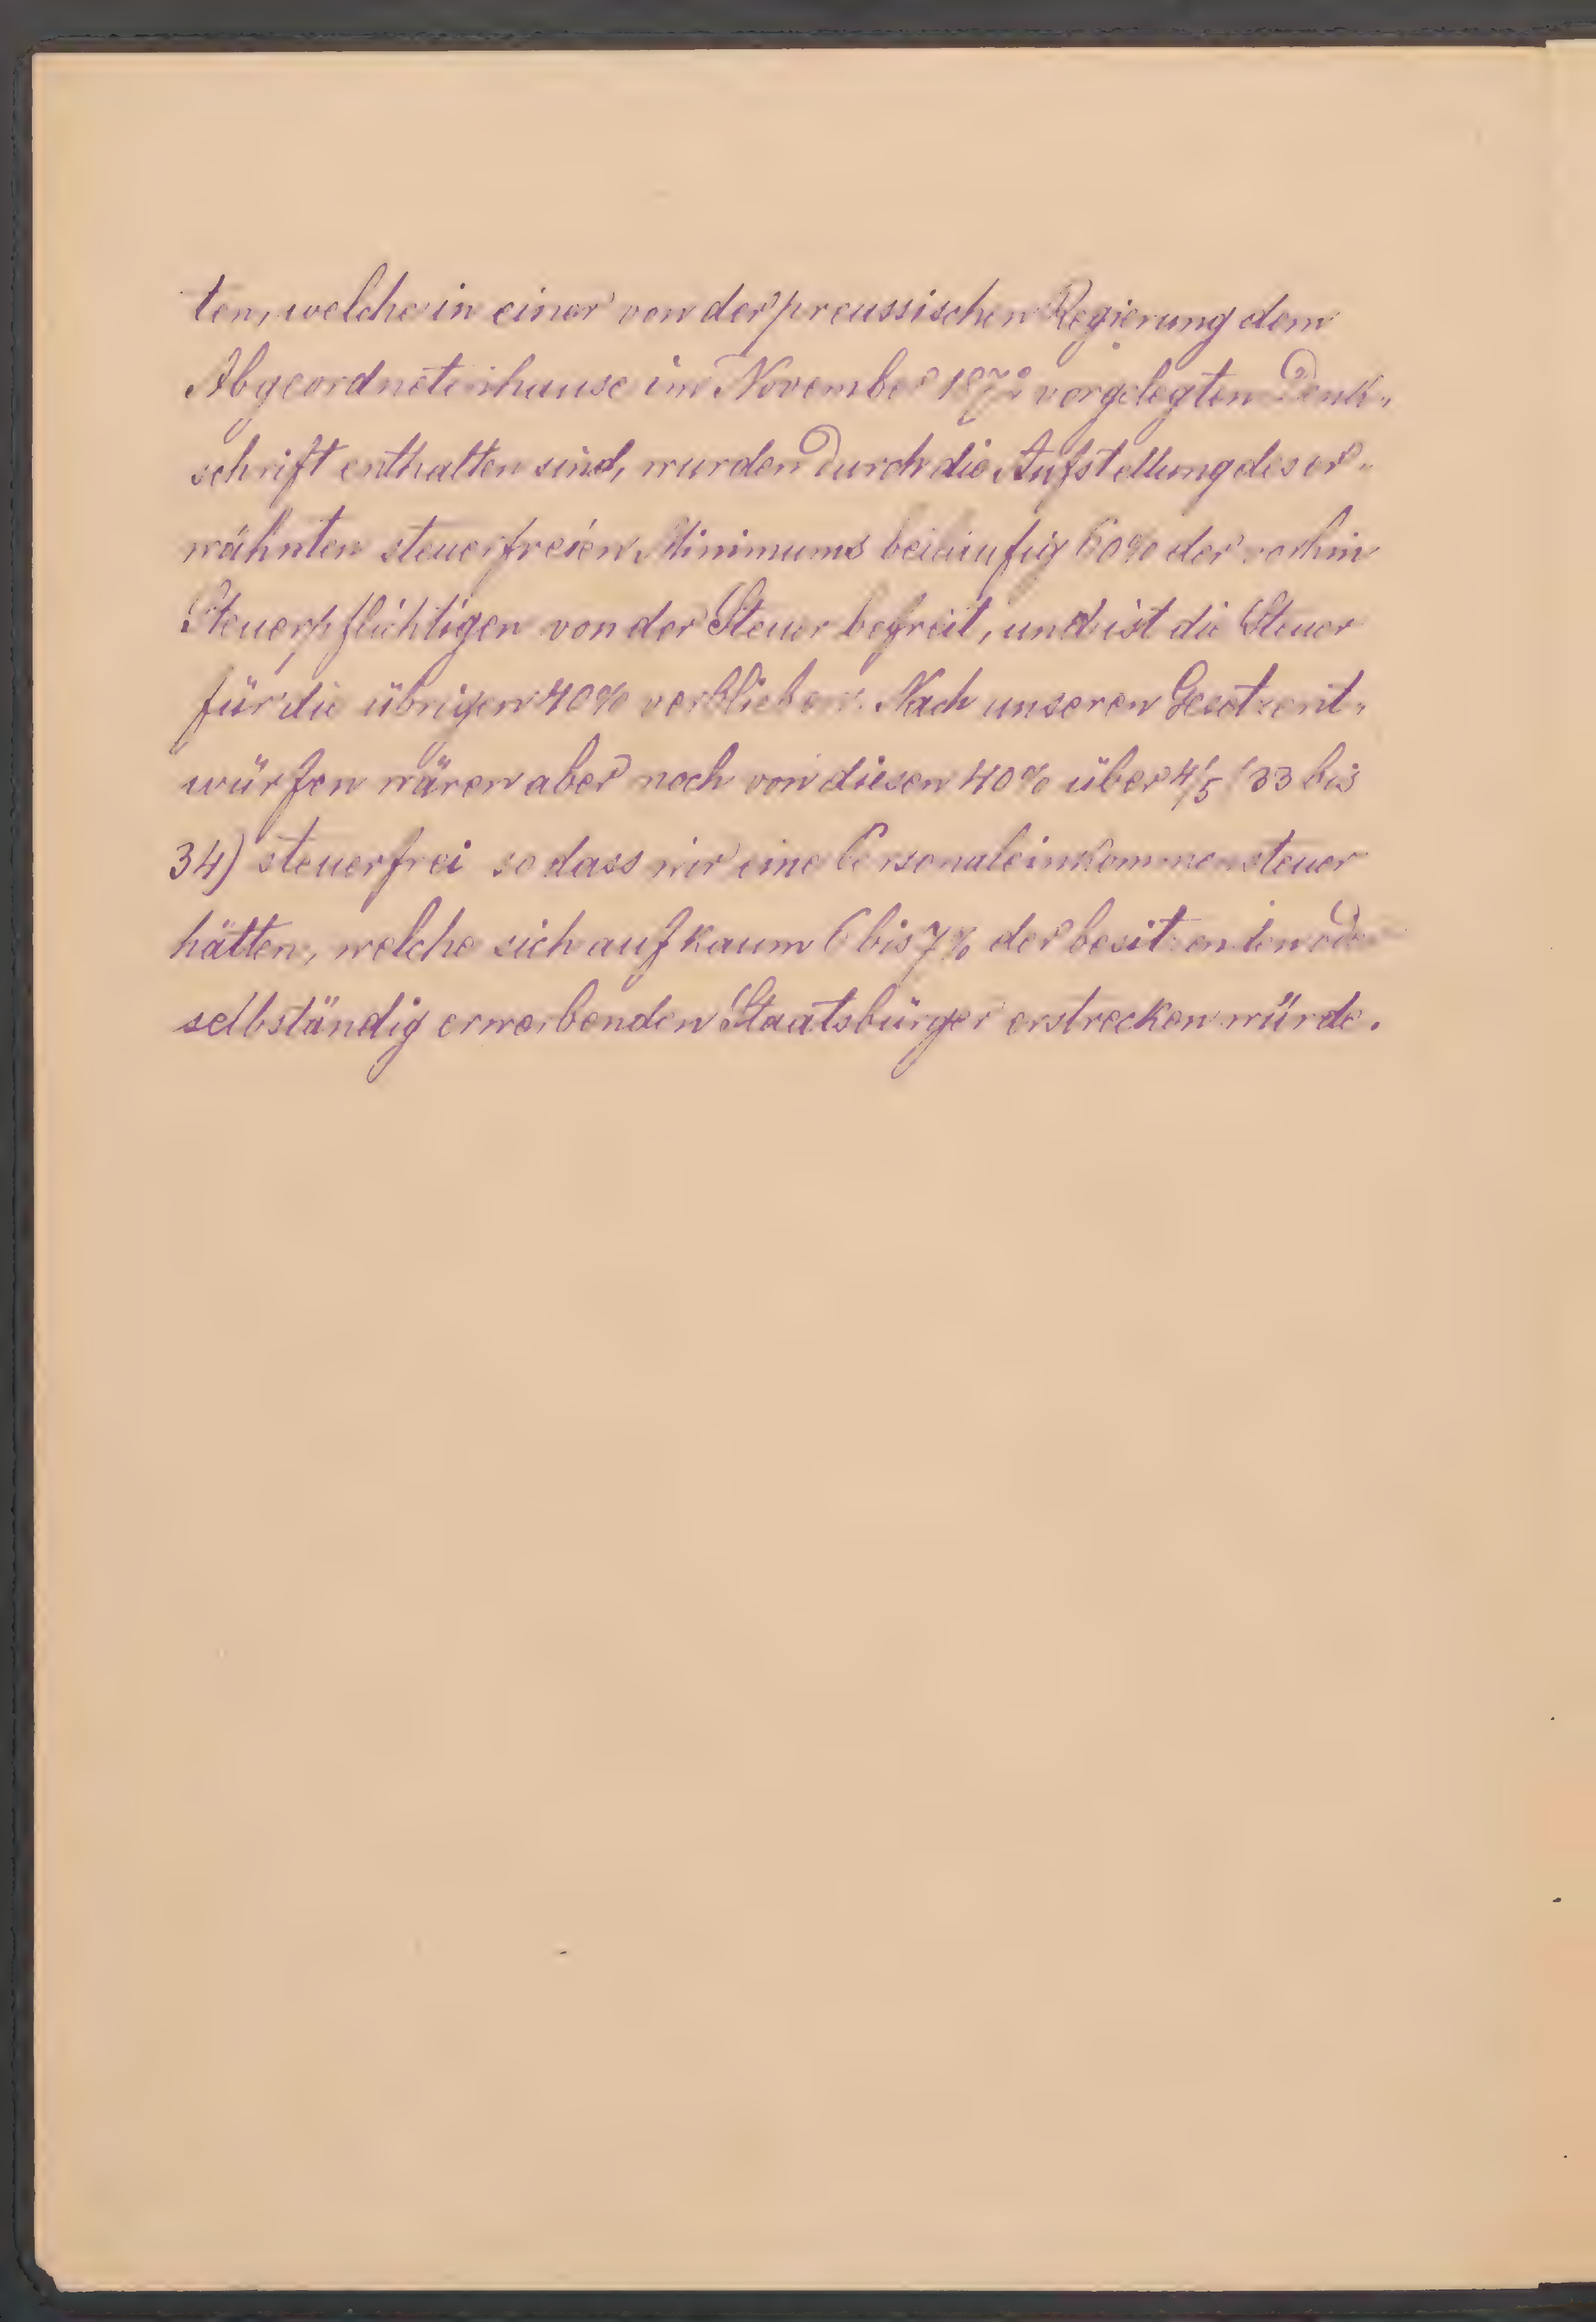 ten, welche in einer von der preussischen Regierung dem
Abgeordnetenhause im November vorgelegten Denk-
schrift enthalten sind, wurden durch die Aufstellung des er-
wähnten steuerfreien Minimums beiläufig 60% der vorhin
Steuerpflichtigen von der Steuer befreit, und ist die Steuer
für die übrigen 40% verblieben. Nach unseren Gesetzent-
würfen wären aber noch von diesen 40% über 4/5 (33 bis
34) steuerfrei so dass wir eine Personaleinkommensteuer
hätten, welche sich auf kaum 6 bis 7% der besitzenden oder
selbständig erwerbenden Staatsbürger erstrecken würde.